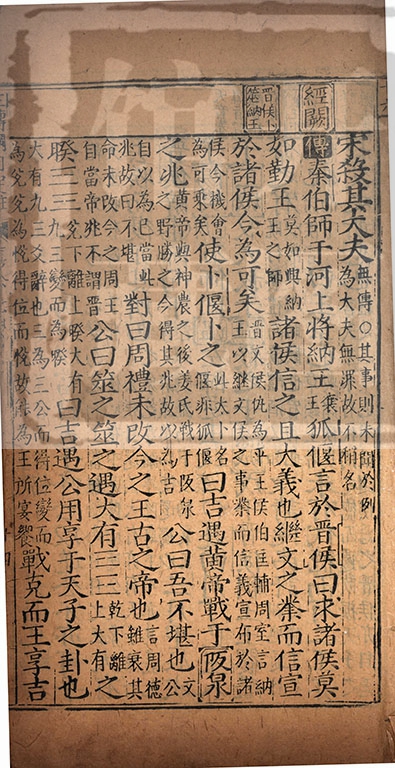 經闕
晉侯卜筮納王
宋殺其大夫無傳○其事則未聞於例為大夫無罪故不稱名
傳秦伯師于河上將納王王襄狐偃言於晉侯曰求諸侯莫
如勤王莫如與納王之師諸侯信之且大義也繼文之業而信宣
於諸侯今為可矣晉文侯仇為平王侯伯匡輔周室言納王以繼文侯之事業而信義宣布於諸
侯今機會為可乘矣使卜偃卜之此大卜名偃非狐偃曰吉遇黃帝戰于阪泉
之兆黃帝與神農之後姜氏戰于阪泉之野勝之今得其兆故以為吉公曰吾不堪也文公
自以為已當此兆故曰不堪對曰周禮未改今之王古之帝也言周德雖衰其
命未改今之周王自當帝兆不謂晉公曰筮之筮之遇大有三三乾下離上大有之
睽三三兌下離上睽大有九三變而為睽曰吉遇公用享于天子之卦也
大有九三爻辭也三為三公而得位變而為兌兌為悅得位而悅故能為王所宴饗戰克而王享吉